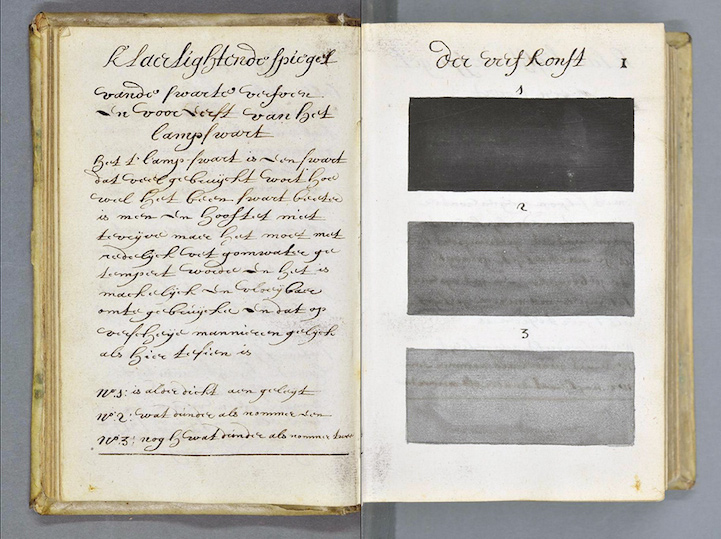 klaerlightende spiegel
vande swarte verfven
en voor eerst van het
lampswart
het t' lampswart is een swart
dat veel gebruijckt wort hoe
wel het been swart beeter
is men en hooft et niet
te vrijve maer het moet met
redelijck vet gomwater ge
tempert worde en het is
mackelijck en vloeijbaer
omte gebruijcke en dat op
verscheije mannieren gelijck
als hier tesien is
N° 1: is alder dickt aen gelegt
N° 2: wat dunder als nommer een
N° 3: nog h wat dunder als nommer twee
der verfkonst 1
1
2
3